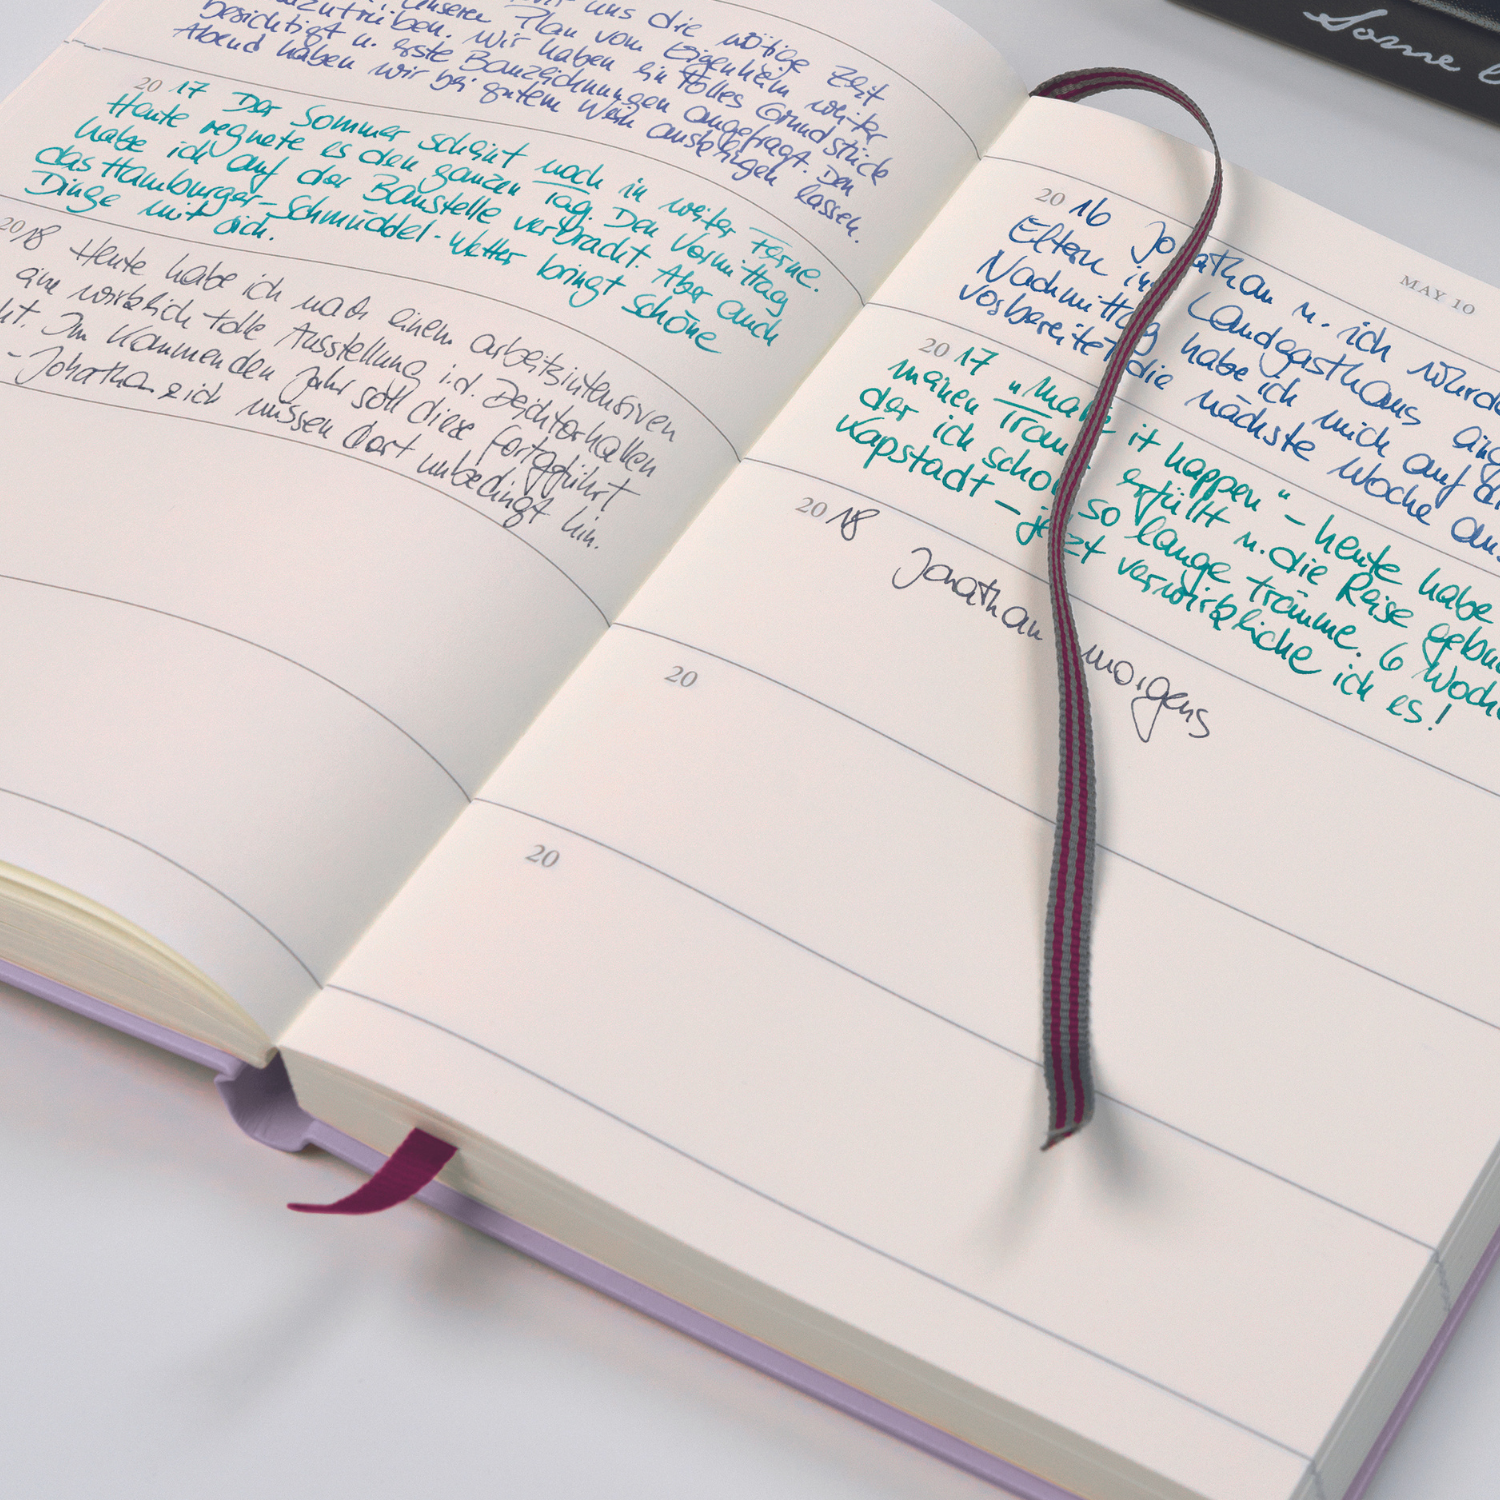 uns die nötige Zeit
unseren Plan vom Eigenheim weiter
Wir haben ein tolles Grundstück
besichtigt u. erste Bauzeichnungen angefragt. Den
Abend haben wir bei gutem Wein ausklingen lassen.
20 17 Der Sommer scheint noch in weiter Ferne.
Heute regnete es den ganzen Tag. Den Vormittag
habe ich auf der Baustelle verbracht. Aber auch
das Hamburger-Schmuddel-Wetter bringt schöne
Dinge mit sich.
2018 Heute habe ich nach einem arbeitsintensiven
eine wirklich tolle Ausstellung i.d. Deichtorhallen
Im kommenden Jahr soll diese fortgeführt
- Jonathan & ich müssen dort unbedingt hin.
MAY 10
20 16 Jonathan u. ich
Eltern im Landgasthaus
Nachmittag habe ich mich auf
vorbereitet die nächste Woche
20 17 "Make it happen" - heute habe
meinen Traum erfüllt u. die Reise
der ich schon so lange träume. 6
Kapstadt - jetzt verwirkliche ich es!
20 18
Jonathan morgens
20
20
Some